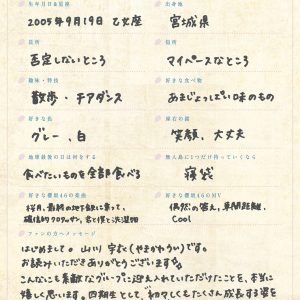 生年月日&星座
出身地
2005年9月19日 乙女座
宮城県
長所
短所
否定しないところ
マイペースなところ
趣味・特技
好きな食べ物
散歩・チアダンス
あまじょっぱい味のもの
好きな色
座右の銘
グレー、白
笑顔、大丈夫
地球最後の日は何をする
無人島に1つだけ持っていくなら
食べたいものを全部食べる
寝袋
好きな櫻坂46の楽曲
好きな櫻坂46のMV
桜月、最終の地下鉄に乗って、
偶然の答え、車間距離、
確信的クロワッサン、恋と僕と洪濯物
Cool
ファンの方へメッセージ
はじめまして。山川宇衣(やまかわうい)です。
お読みいただきありがとうございます
こんなにも素敵なグループに迎え入れていただけたことを、本当に
嬉しく思います。四期生として、初々しくもたくさん成長する姿を